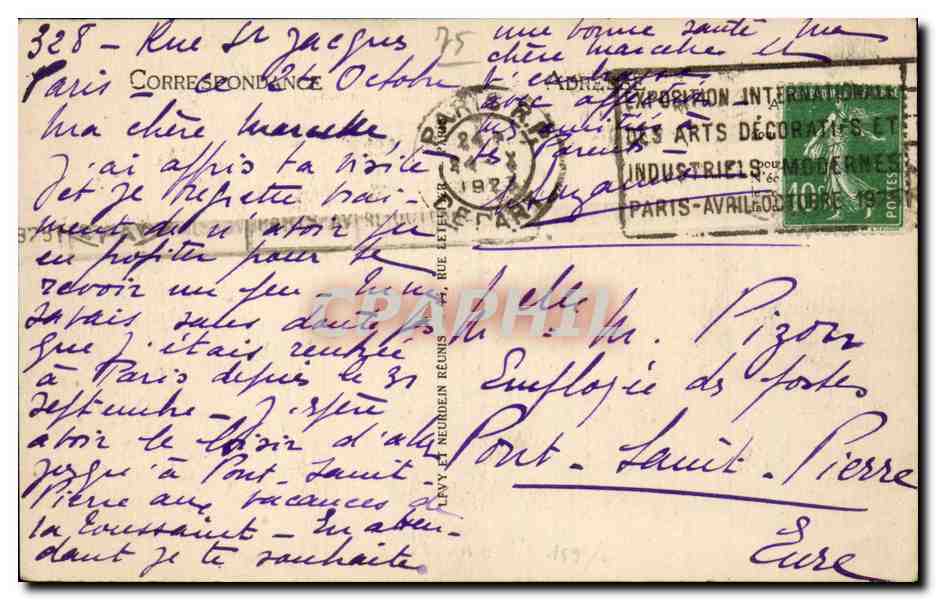 328 - Rue St Jacques
Paris - 24 Octobre
CORRESPONDANCE
Ma chère Marcelle
J'ai appris ta visite
et je regrette vrai-
ment de n'avoir pu
en profiter pour te
revoir un peu - Tu ne
savais sans doute pas
que j'étais rentrée
à Paris depuis le 31
septembre - J'espère
avoir le loisir d'aller
jusqu'à Pont-Saint
Pierre aux vacances de
la Toussaint - En atten-
dant je te souhaite
une bonne santé ma
chère Marcelle et
t'embrasse
avec affection -
amitiés
tes Parents
75
ADRESSE
PARIS
DEPART
EXPOSITION INTERNATIONALE
DES ARTS DÉCORATIFS ET
INDUSTRIELS MODERNES
PARIS-AVRIL-OCTOBRE 192
10c
POSTES
LEVY ET NEURDEIN RÉUNIS 44, RUE LETELLIER - PARIS
Melle M. Pizon
Employée des postes
Pont-Saint-Pierre
Eure
159
CPAPHIL